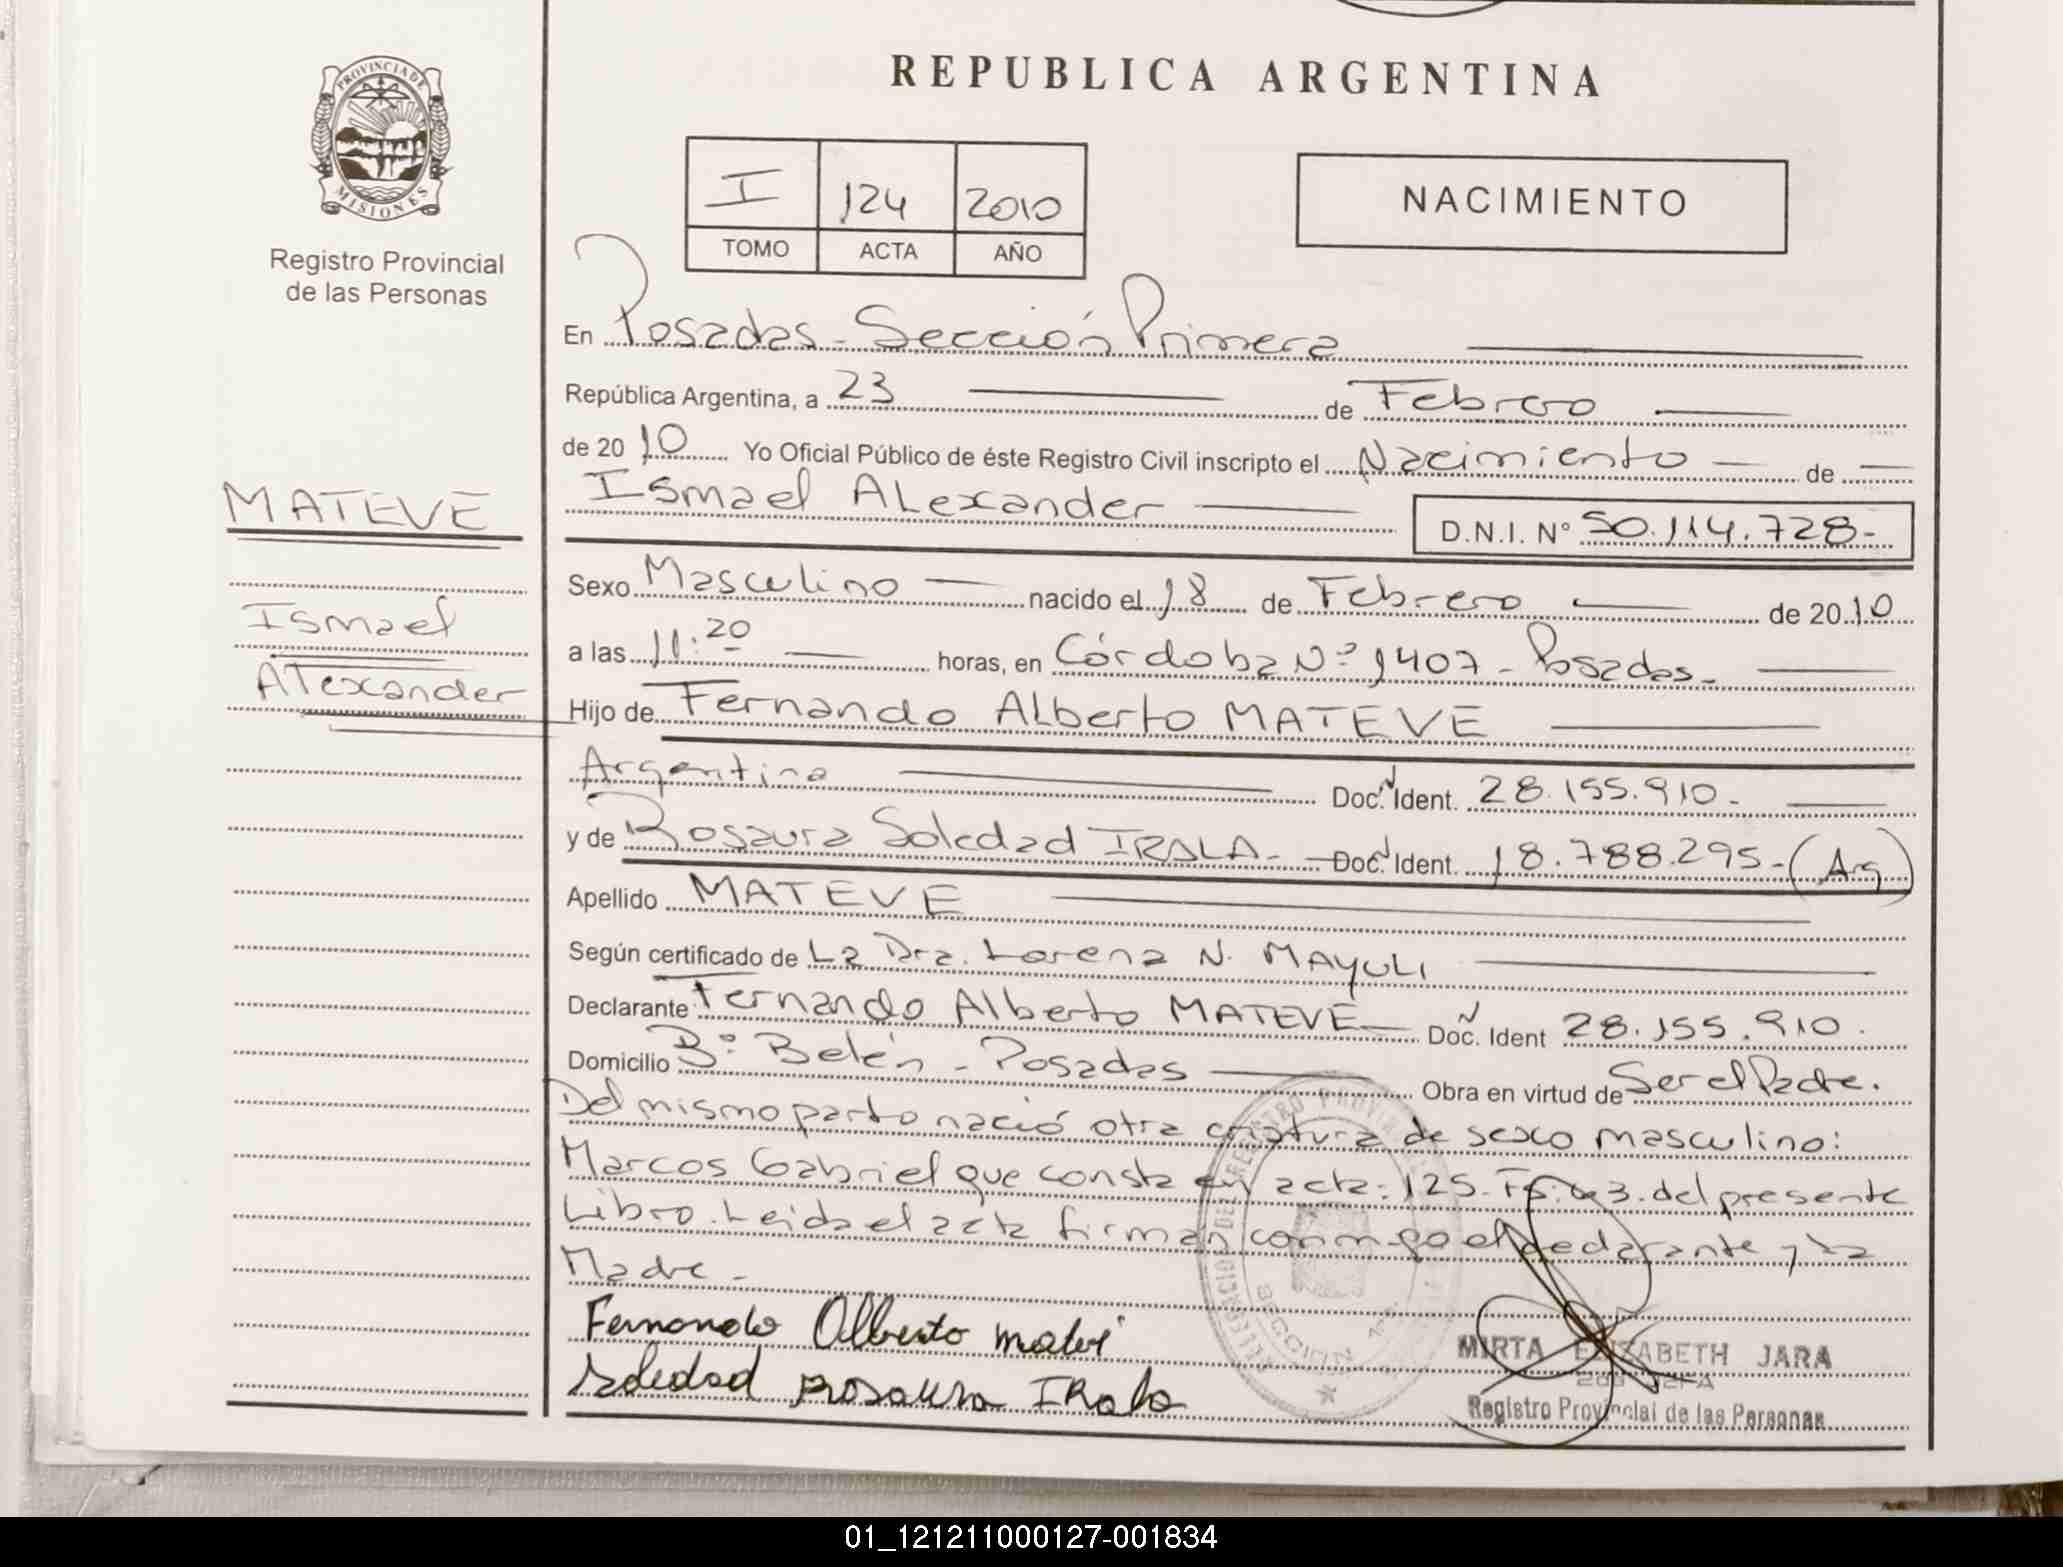 PROVINCIA DE
MISIONES
Registro Provincial
de las Personas
MATEVE
Ismael
Alexander
REPUBLICA ARGENTINA
I 124 2010
TOMO ACTA AÑO
NACIMIENTO
En Posadas - Sección Primera
República Argentina, a 23 de Febrero
de 2010 Yo Oficial Público de éste Registro Civil inscripto el Nacimiento de
Ismael Alexander
D.N.I. Nº 50.114.728-
Sexo Masculino nacido el 18 de Febrero de 2010
a las 11:20 horas, en Córdoba Nº 1407 - Posadas-
Hijo de Fernando Alberto MATEVE
Argentina Doc. Ident. 28.155.910-
y de Rosaura Soledad IRALA- Doc. Ident. 18.788.295-(Arg)
Apellido MATEVE
Según certificado de La Dra. Lorena N. MAYULI
Declarante Fernando Alberto MATEVE Doc. Ident 28.155.910.
Domicilio Bº Belén - Posadas Obra en virtud de Ser el Padre.
Del mismo parto nació otra criatura de sexo masculino:
Marcos Gabriel que consta en acta: 125. Fº: 63. del presente
Libro. Leída el acta firman conmigo el declarante y la
Madre -
Fernando Alberto
Soledad Rosaura IRala
MIRTA ELIZABETH JARA
Registro Provincial de las Personas
SECCION 1ra
01_121211000127-001834